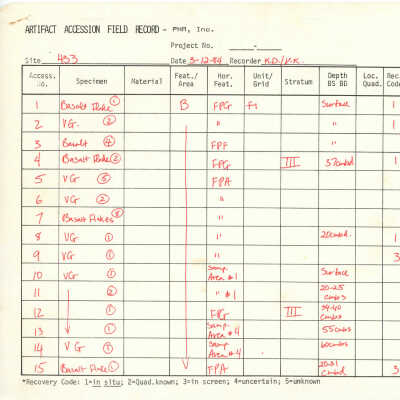 ARTIFACT ACCESSION FIELD RECORD - PHR, Inc.
Project No. -
Site 433 Date 3-12-84 Recorder K.D./V.R.
Access. No. Specimen Material Feat./Area Hor. Feat. Unit/Grid Stratum Depth BS BD Loc. Quad. Rec. Code
1 Basalt Flake 1 B FPG f1 Surface 1
2 VG. 2 " " 1
3 Basalt 4 FPF "
4 Basalt Flake 2 FPG III 57cmbd 1
5 VG 3 FPA
6 VG 2 "
7 Basalt Flakes 8 "
8 VG 1 " 20cmbd. 1
9 VG 1 " 3
10 VG 1 Samp. Area #1 Surface
11 2 " #1 20-25 cmbs
12 1 FIG III 39-40 cmbs
13 1 Samp. Area #4 55cmbs
14 VG 1 Samp. Area #4 60cmbs
15 Basalt Flake 1 FPA 20-31 cmbd 3
*Recovery Code: 1=in situ; 2=Quad.known; 3=in screen; 4=uncertain; 5=unknown